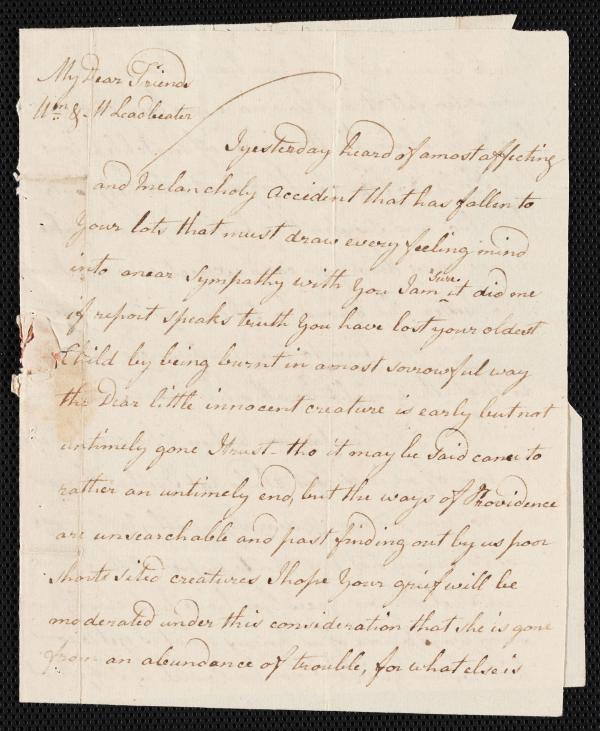 My Dear Friends
Wm & M Leadbeater
I yesterday heard of a most affecting
and melancholy accident that has fallen to
Your lots that must draw every feeling mind
into a near Sympathy with You I am sure it did me
if report speaks truth You have lost your oldest
Child by being burnt in a most sorrowful way
the Dear little innocent creature is early but not
untimely gone I trust - tho it may be said came to
rather an untimely end, but the ways of Providence
are unsearchable and past finding out by us poor
shorts sited creatures I hope Your grief will be
moderated under this consideration that she is gone
from an abundance of trouble, for what else is